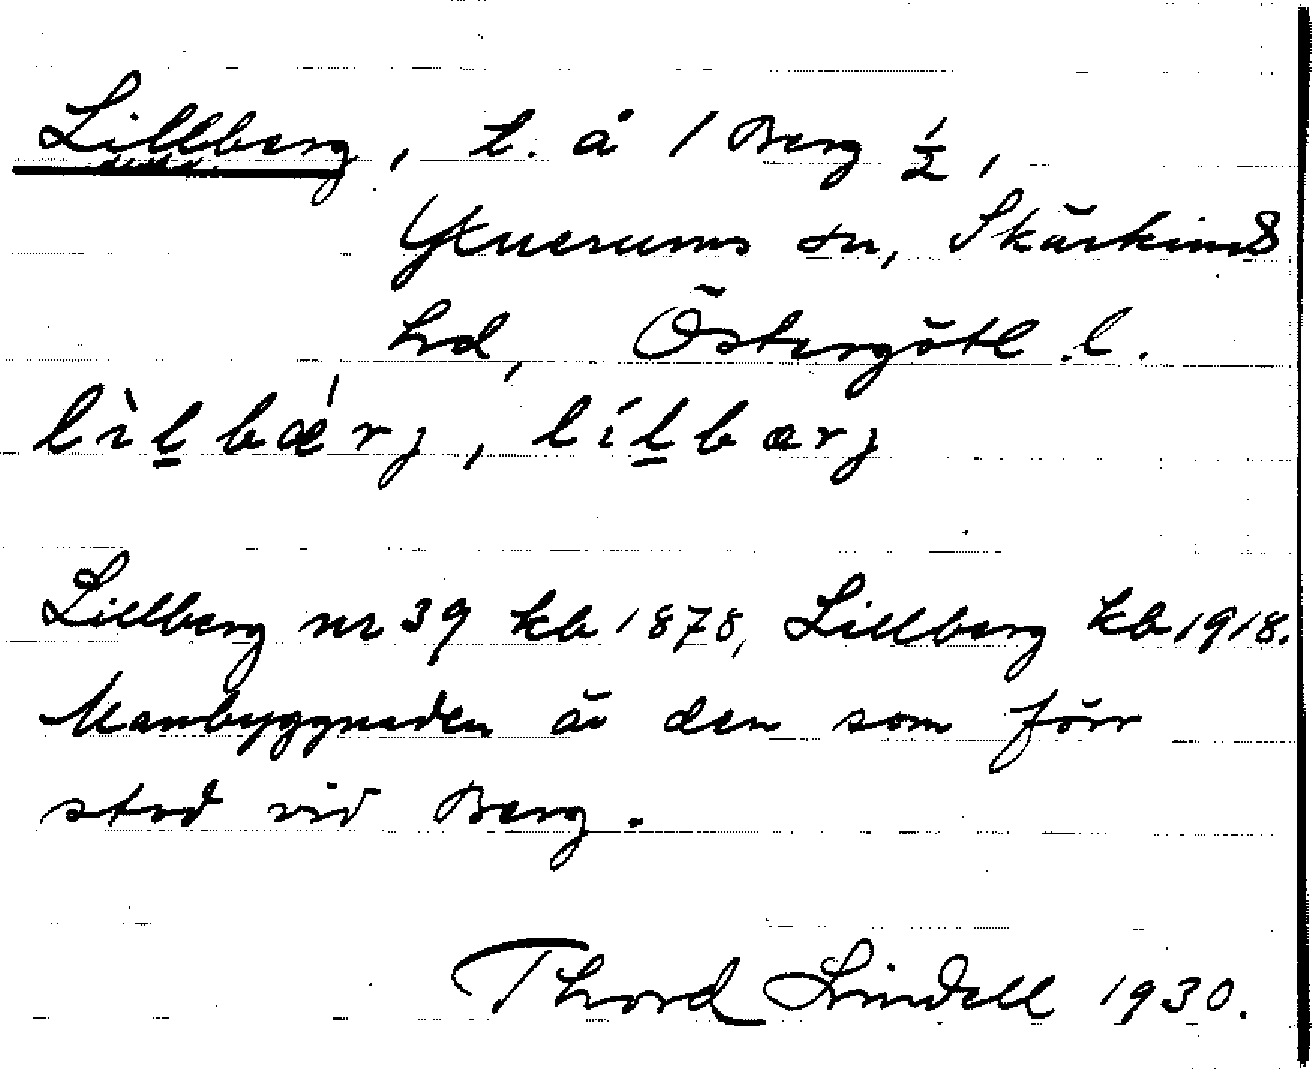 Lillberg, t. å 1 Berg 1/2,
Yxnerums sn, Skärkinds
hd, Östergötl. l.
lìl̠bǽrj, líl̠bærj
Lillberg nr 39 kb 1878, Lillberg kb 1918.
Manbyggnaden är den som förr
stod vid Berg.
Thord Lindell 1930.